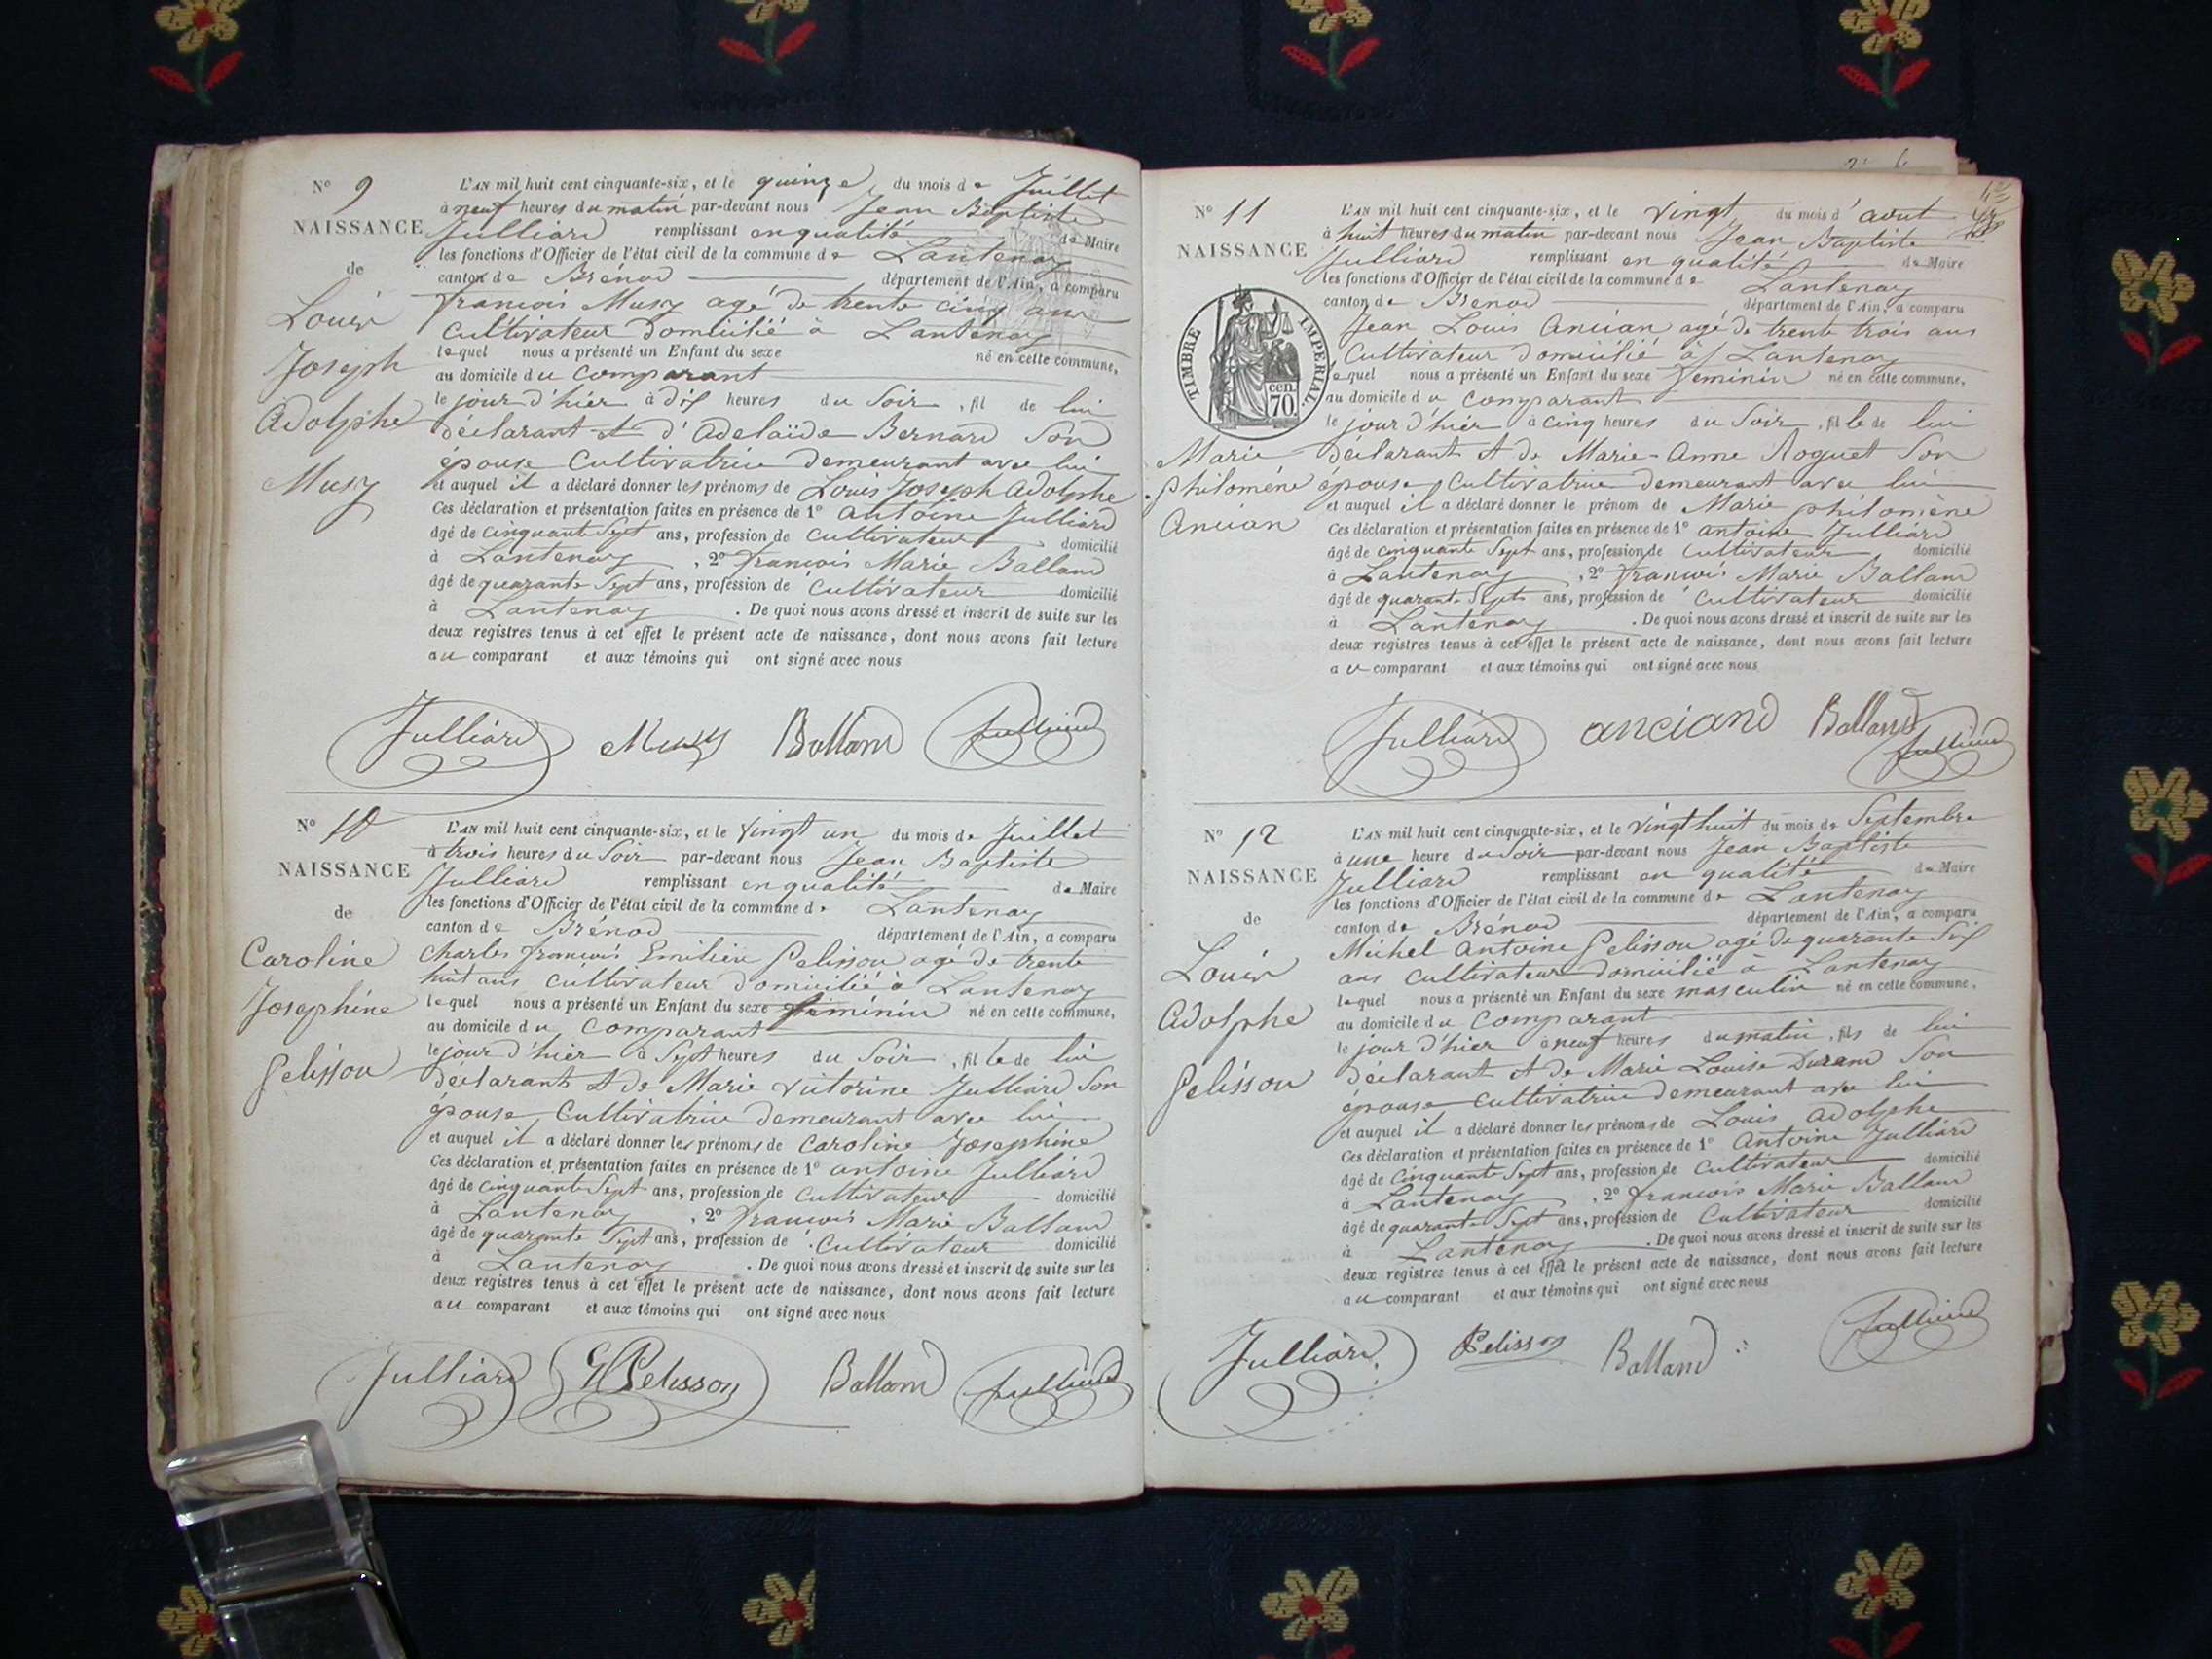 N° 9
NAISSANCE
de
Louis
Joseph
Adolphe
Musy
L'AN mil huit cent cinquante-six, et le quinze du mois de Juillet
à neuf heures du matin par-devant nous Jean Baptiste
Julliard remplissant en qualité de Maire
les fonctions d'Officier de l'état civil de la commune de Lantenay
canton de Brénod département de l'Ain, a comparu
francois Musy agé de trente cinq ans
Cultivateur domicilié à Lantenay
lequel nous a présenté un Enfant du sexe né en cette commune,
au domicile du Comparant
le jour d'hier à dix heures du Soir, fil de lui
déclarant et d'Adelaïde Bernard Son
épouse Cultivatrice demeurant avec lui
et auquel il a déclaré donner les prénoms de Louis Joseph Adolphe
Ces déclaration et présentation faites en présence de 1° Antoine Julliard
âgé de cinquante Sept ans, profession de Cultivateur domicilié
à Lantenay, 2° francois Marie Balland
âgé de quarante Sept ans, profession de Cultivateur domicilié
à Lantenay. De quoi nous avons dressé et inscrit de suite sur les
deux registres tenus à cet effet le présent acte de naissance, dont nous avons fait lecture
au comparant et aux témoins qui ont signé avec nous
Julliard Musy Balland Julliard
N° 10
NAISSANCE
de
Caroline
Josephine
Pelisson
L'AN mil huit cent cinquante-six, et le Vingt un du mois de Juillet
à trois heures du Soir par-devant nous Jean Baptiste
Julliard remplissant en qualité de Maire
les fonctions d'Officier de l'état civil de la commune de Lantenay
canton de Brénod département de l'Ain, a comparu
Charles francois Emilien Pelisson agé de trente
huit ans Cultivateur domicilié à Lantenay
lequel nous a présenté un Enfant du sexe féminin né en cette commune,
au domicile du Comparant
le jour d'hier à Sept heures du Soir, fille de lui
déclarant et de Marie Victorine Julliard Son
épouse Cultivatrice demeurant avec lui
et auquel il a déclaré donner les prénoms de Caroline Josephine
Ces déclaration et présentation faites en présence de 1° Antoine Julliard
âgé de cinquante Sept ans, profession de Cultivateur domicilié
à Lantenay, 2° francois Marie Balland
âgé de quarante Sept ans, profession de Cultivateur domicilié
à Lantenay. De quoi nous avons dressé et inscrit de suite sur les
deux registres tenus à cet effet le présent acte de naissance, dont nous avons fait lecture
au comparant et aux témoins qui ont signé avec nous
Julliard Pelisson Balland Julliard
N° 11
NAISSANCE
TIMBRE IMPERIAL
70 cen.
Marie
philomène
Ancian
L'AN mil huit cent cinquante-six, et le Vingt du mois d'aout
à huit heures du matin par-devant nous Jean Baptiste
Julliard remplissant en qualité de Maire
les fonctions d'Officier de l'état civil de la commune de Lantenay
canton de Brenod département de l'Ain, a comparu
Jean Louis Ancian agé de trente trois ans
Cultivateur domicilié à Lantenay
lequel nous a présenté un Enfant du sexe feminin né en cette commune,
au domicile du comparant
le jour d'hier à cinq heures du Soir, fille de lui
déclarant et de Marie-Anne Roguet Son
épouse, Cultivatrice demeurant avec lui
et auquel il a déclaré donner le prénom de Marie philomène
Ces déclaration et présentation faites en présence de 1° antoine Julliard
âgé de cinquante Sept ans, profession de Cultivateur domicilié
à Lantenay, 2° francois Marie Balland
âgé de quarante Sept ans, profession de Cultivateur domicilié
à Lantenay. De quoi nous avons dressé et inscrit de suite sur les
deux registres tenus à cet effet le présent acte de naissance, dont nous avons fait lecture
au comparant et aux témoins qui ont signé avec nous
Julliard anciand Balland Julliard
N° 12
NAISSANCE
de
Louis
Adolphe
Pelisson
L'AN mil huit cent cinquante-six, et le Vingt huit du mois de Septembre
à une heure du Soir par-devant nous Jean Baptiste
Julliard remplissant en qualité de Maire
les fonctions d'Officier de l'état civil de la commune de Lantenay
canton de Brénod département de l'Ain, a comparu
Michel Antoine Pelisson agé de quarante Six
ans Cultivateur domicilié à Lantenay
lequel nous a présenté un Enfant du sexe masculin né en cette commune,
au domicile du Comparant
le jour d'hier à neuf heures du matin, fils de lui
déclarant et de Marie Louise Durand Son
épouse Cultivatrice demeurant avec lui
et auquel il a déclaré donner les prénoms de Louis Adolphe
Ces déclaration et présentation faites en présence de 1° Antoine Julliard
âgé de Cinquante Sept ans, profession de Cultivateur domicilié
à Lantenay, 2° francois Marie Balland
âgé de quarante Sept ans, profession de Cultivateur domicilié
à Lantenay. De quoi nous avons dressé et inscrit de suite sur les
deux registres tenus à cet effet le présent acte de naissance, dont nous avons fait lecture
au comparant et aux témoins qui ont signé avec nous
Julliard Pelisson Balland Julliard